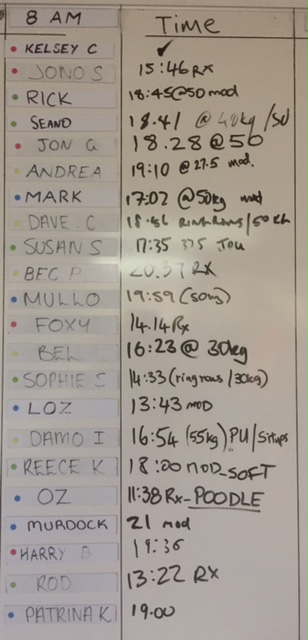 8 AM Time
KELSEY C ✓
JONO S 15:46 RX
RICK 18:45@50 mod
SEAND 18.41 @ 40kg
JON G 18.28 @ 50
ANDREA 19:10 @ 27.5 mod.
MARK 17:02 @50kg mod
DAVE C RINGROWS/50
SUSAN S 17:35
BEC P 20.37 RX
MULLO 19:59 (50kg)
FOXY 14.14 Rx
BEL 16:23 @ 30kg
SOPHIE S 14:33 (ring rows / 30kg)
LOZ 13:43 MOD
DAMO I 16:54 (55kg) PU/Situps
REECE K 18:00 MOD_SOFT
OZ 11:38 Rx - POODLE
MURDOCK 21 mod
HARRY B 19:36
ROD 13:22 RX
PATRINA K 19.00